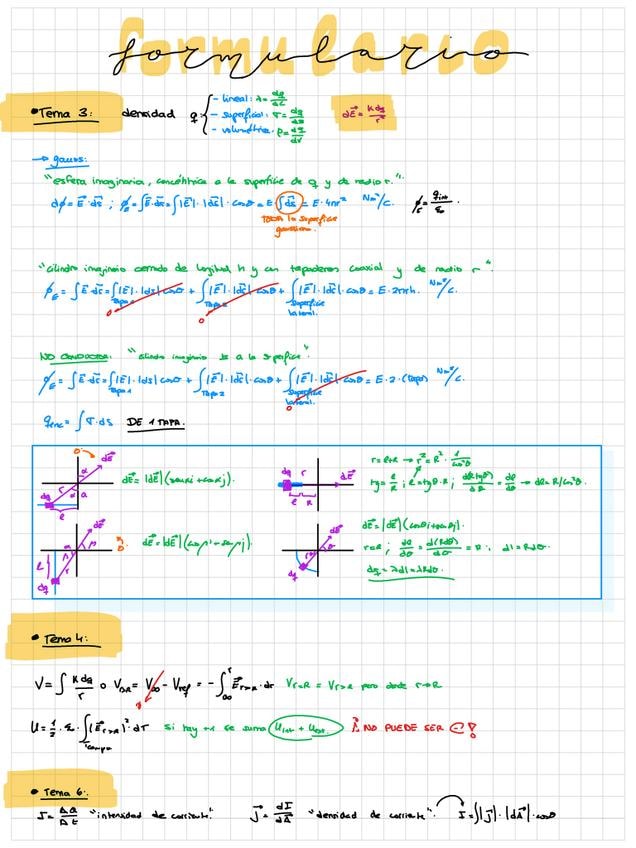 formulario
•Tema 3: densidad q { – lineal: λ = dq/dl
– superficial: σ = dq/ds
– volumétrica: ρ = dq/dv
dE⃗ = K dq / r²
→ gauss:
"esfera imaginaria, concéntrica a la superficie de q y de radio r".
dϕ = E⃗·ds⃗ ; ϕ_E = ∫E⃗·ds⃗ = ∫|E⃗|·|ds⃗|·cosθ = E ∫ds⃗ = E·4πr² Nm²/C. ϕ_E = q_int/ε₀.
TODA la superficie
gaussiana.
"cilindro imaginario cerrado de longitud h y con tapaderas coaxial y de radio r".
ϕ_E = ∫E⃗·ds⃗ = ∫|E⃗|·|ds|cosθ + ∫|E⃗|·|ds⃗|cosθ + ∫|E⃗|·|ds⃗|cosθ = E·2πrh. Nm²/C.
Tapa 1 Tapa 2 superficie
lateral.
0 0
NO CONDUCTOR: "cilindro imaginario a la superficie".
ϕ_E = ∫E⃗·ds⃗ = ∫|E⃗|·|ds|cosθ + ∫|E⃗|·|ds⃗|cosθ + ∫|E⃗|·|ds⃗|cosθ = E·2·(tapa) Nm²/C.
Tapa 1 Tapa 2 superficie
lateral.
0
q_enc = ∫σ·ds DE 1 TAPA.
dE⃗ = |dE⃗|(senαi + cosαj).
dE⃗
α
r
a
dq
l
dq r dE⃗
l R
r = l+R → r² = R²·1/cos²θ
tg = l/R ; l = tgθ·R ; d(Rtgθ)/dθ = dl/dθ → dl = R/cos²θ.
dE⃗
dE⃗ = |dE⃗|(cosβi – senβj).
l
r
dq
dE⃗
r
θ
dq
dE⃗ = |dE⃗|(cosθi + senθj).
r = R ; dl/dθ = d(Rθ)/dθ = R ; dl = Rdθ.
dq = λdl = λRdθ.
• Tema 4:
V = ∫ K dq / r o V_∞R = V_∞ – V_ref = – ∫_∞^r E⃗_r>R·dr V_r=R = V_r>R pero donde r→R
U = ½·ε₀·∫(E⃗_r>R)²·dτ Si hay +1 se suma U_int + U_ext. NO PUEDE SER ⊖!
campo
• Tema 6:
I = ΔQ/Δt "intensidad de corriente". J⃗ = dI/dA⃗ "densidad de corriente". I = ∫|J⃗|·|dA⃗|·cosθ